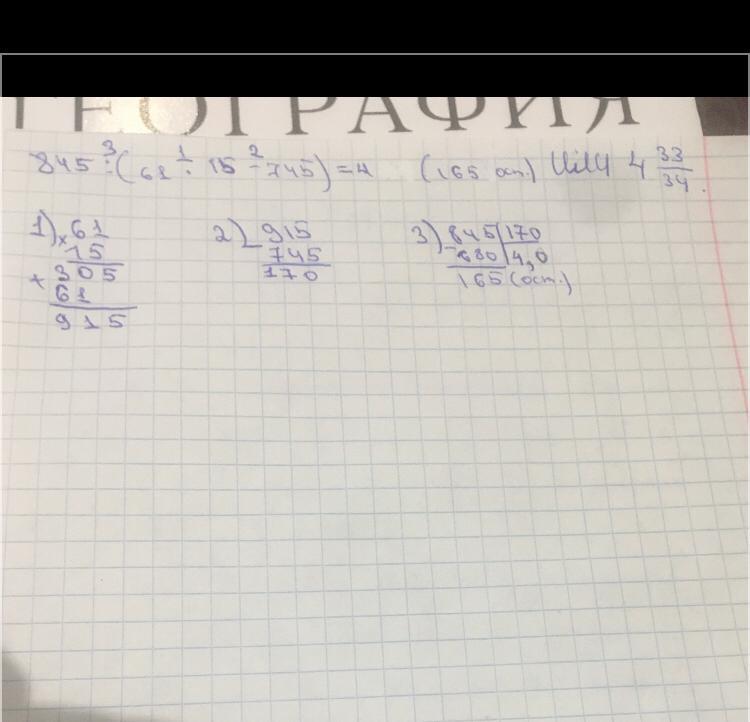 ГЕОГРАФИЯ
3 1 2
845 : (61 · 15 - 745) = 4 (165 ост.) или 4 33/34.
1) × 61
15
+ 305
61
915
2) - 915
745
170
3) - 845 | 170
680 | 4,0
165 (ост.)